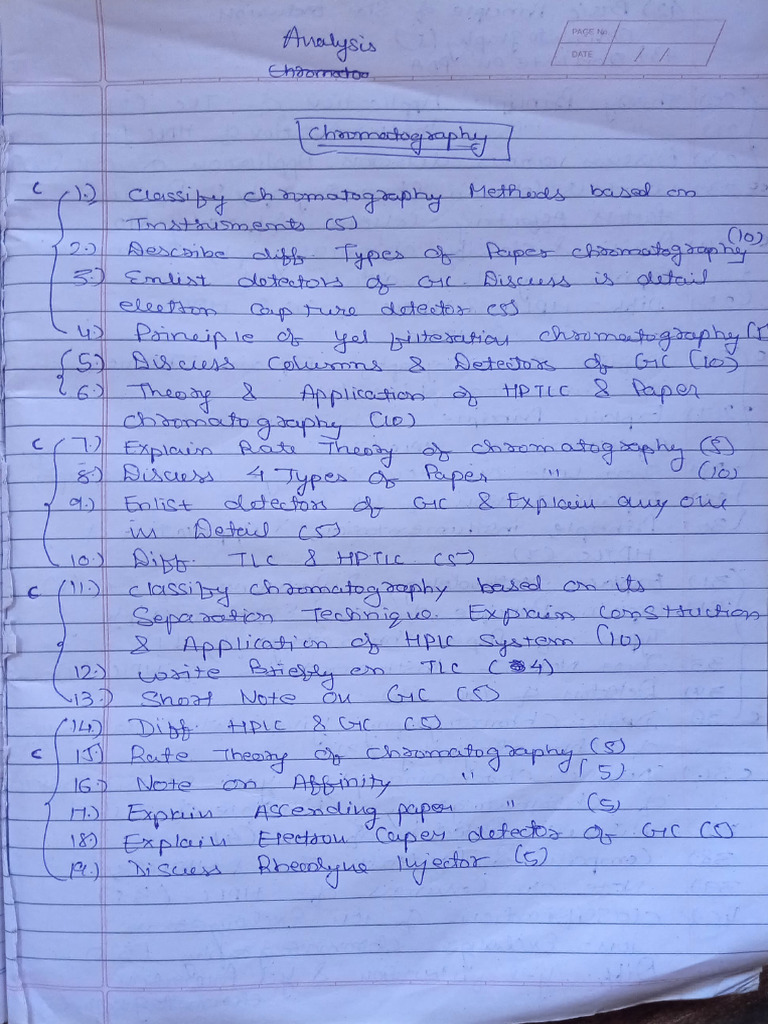 Analysis
PAGE No.
DATE / /
Chromatoo
Chromatography
C 1.) Classify chromatography Methods based on
Instruments (5)
2.) Describe diff. Types of Paper chromatography (10)
3.) Enlist detectors of GC. Discuss is detail
electron Capture detector (5)
4.) Principle of gel filteration chromatography (5
5.) Discuss Columns & Detectors of GC (10)
6.) Theory & Application of HPTLC & Paper
chromatography (10)
C 7.) Explain Rate Theory of chromatography (5)
8.) Discuss 4 Types of Paper " (10)
9.) Enlist detectors of GC & Explain any one
in Detail (5)
10.) Diff. TLC & HPTLC (5)
C 11.) Classify chromatography based on its
Separation Technique. Explain Consttuction
& Application of HPLC System (10)
12.) Write Briefly on TLC (4)
13.) Short Note on GC (5)
14.) Diff. HPLC & GC (5)
C 15) Rate Theory of Chromatography (5)
16.) Note on Affinity " (5)
17.) Explain Ascending paper " (5)
18) Explain Electron Caper detector of GC (5)
19.) Discuss Rheodyne Injector (5)